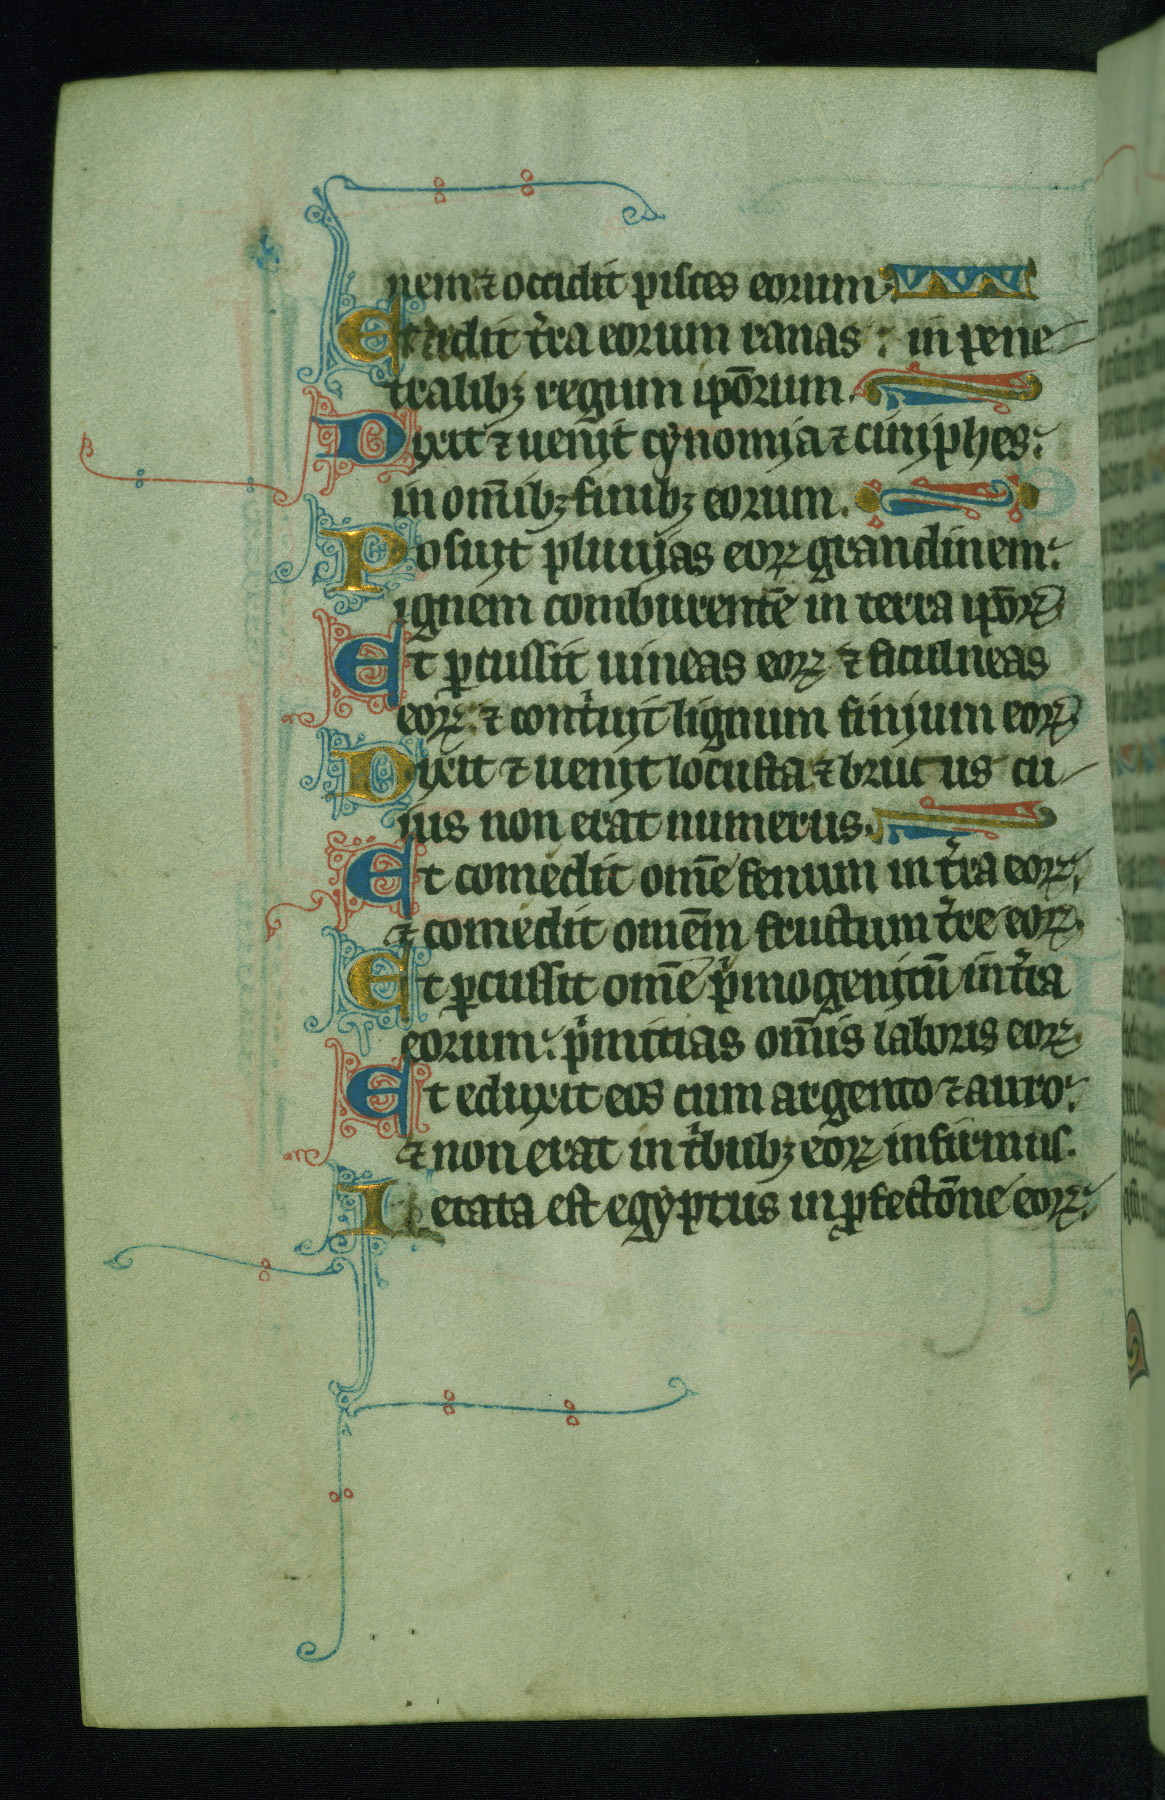 nem: ⁊ occidit pisces eorum.
Et edidit t̾ra eorum ranas: in pene
tralibꝫ regum ip̄orum.
Dixit ⁊ uenit cynomia ⁊ ciniphes:
in om̄ibꝫ finibꝫ eorum.
Posuit pluuias eoꝝ grandinem:
ignem comburente᷒m in terra ip̄oꝝ
Et ꝑcussit uineas eoꝝ ⁊ ficulneas
eoꝝ: ⁊ cont̾uit lignum finium eoꝝ
Dixit ⁊ uenit locusta ⁊ bruc us cu
ius non erat numerus.
Et comedit om̄e fenum in t̾ra eoꝝ:
⁊ comedit omēm fructum t̾re eoꝝ.
Et ꝑcussit om̄e p̾mogenitū in t̾ra
eorum: p̾mitias om̄is laboris eoꝝ.
Et eduxit eos cum argento ⁊ auro:
⁊ non erat in t̾bubꝫ eoꝝ infirmus.
Letata est egyptus in ꝓfectōne eoꝝ: